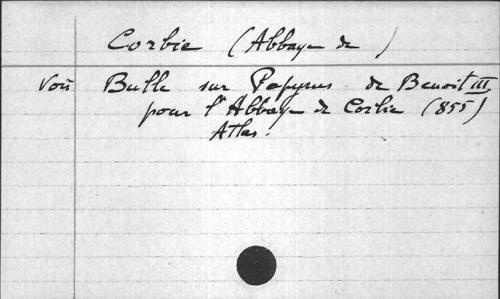 Corbie (Abbaye de )
Voir Bulle sur Papyrus de Benoit III
pour l'Abbaye de Corbie (855)
Atlas.